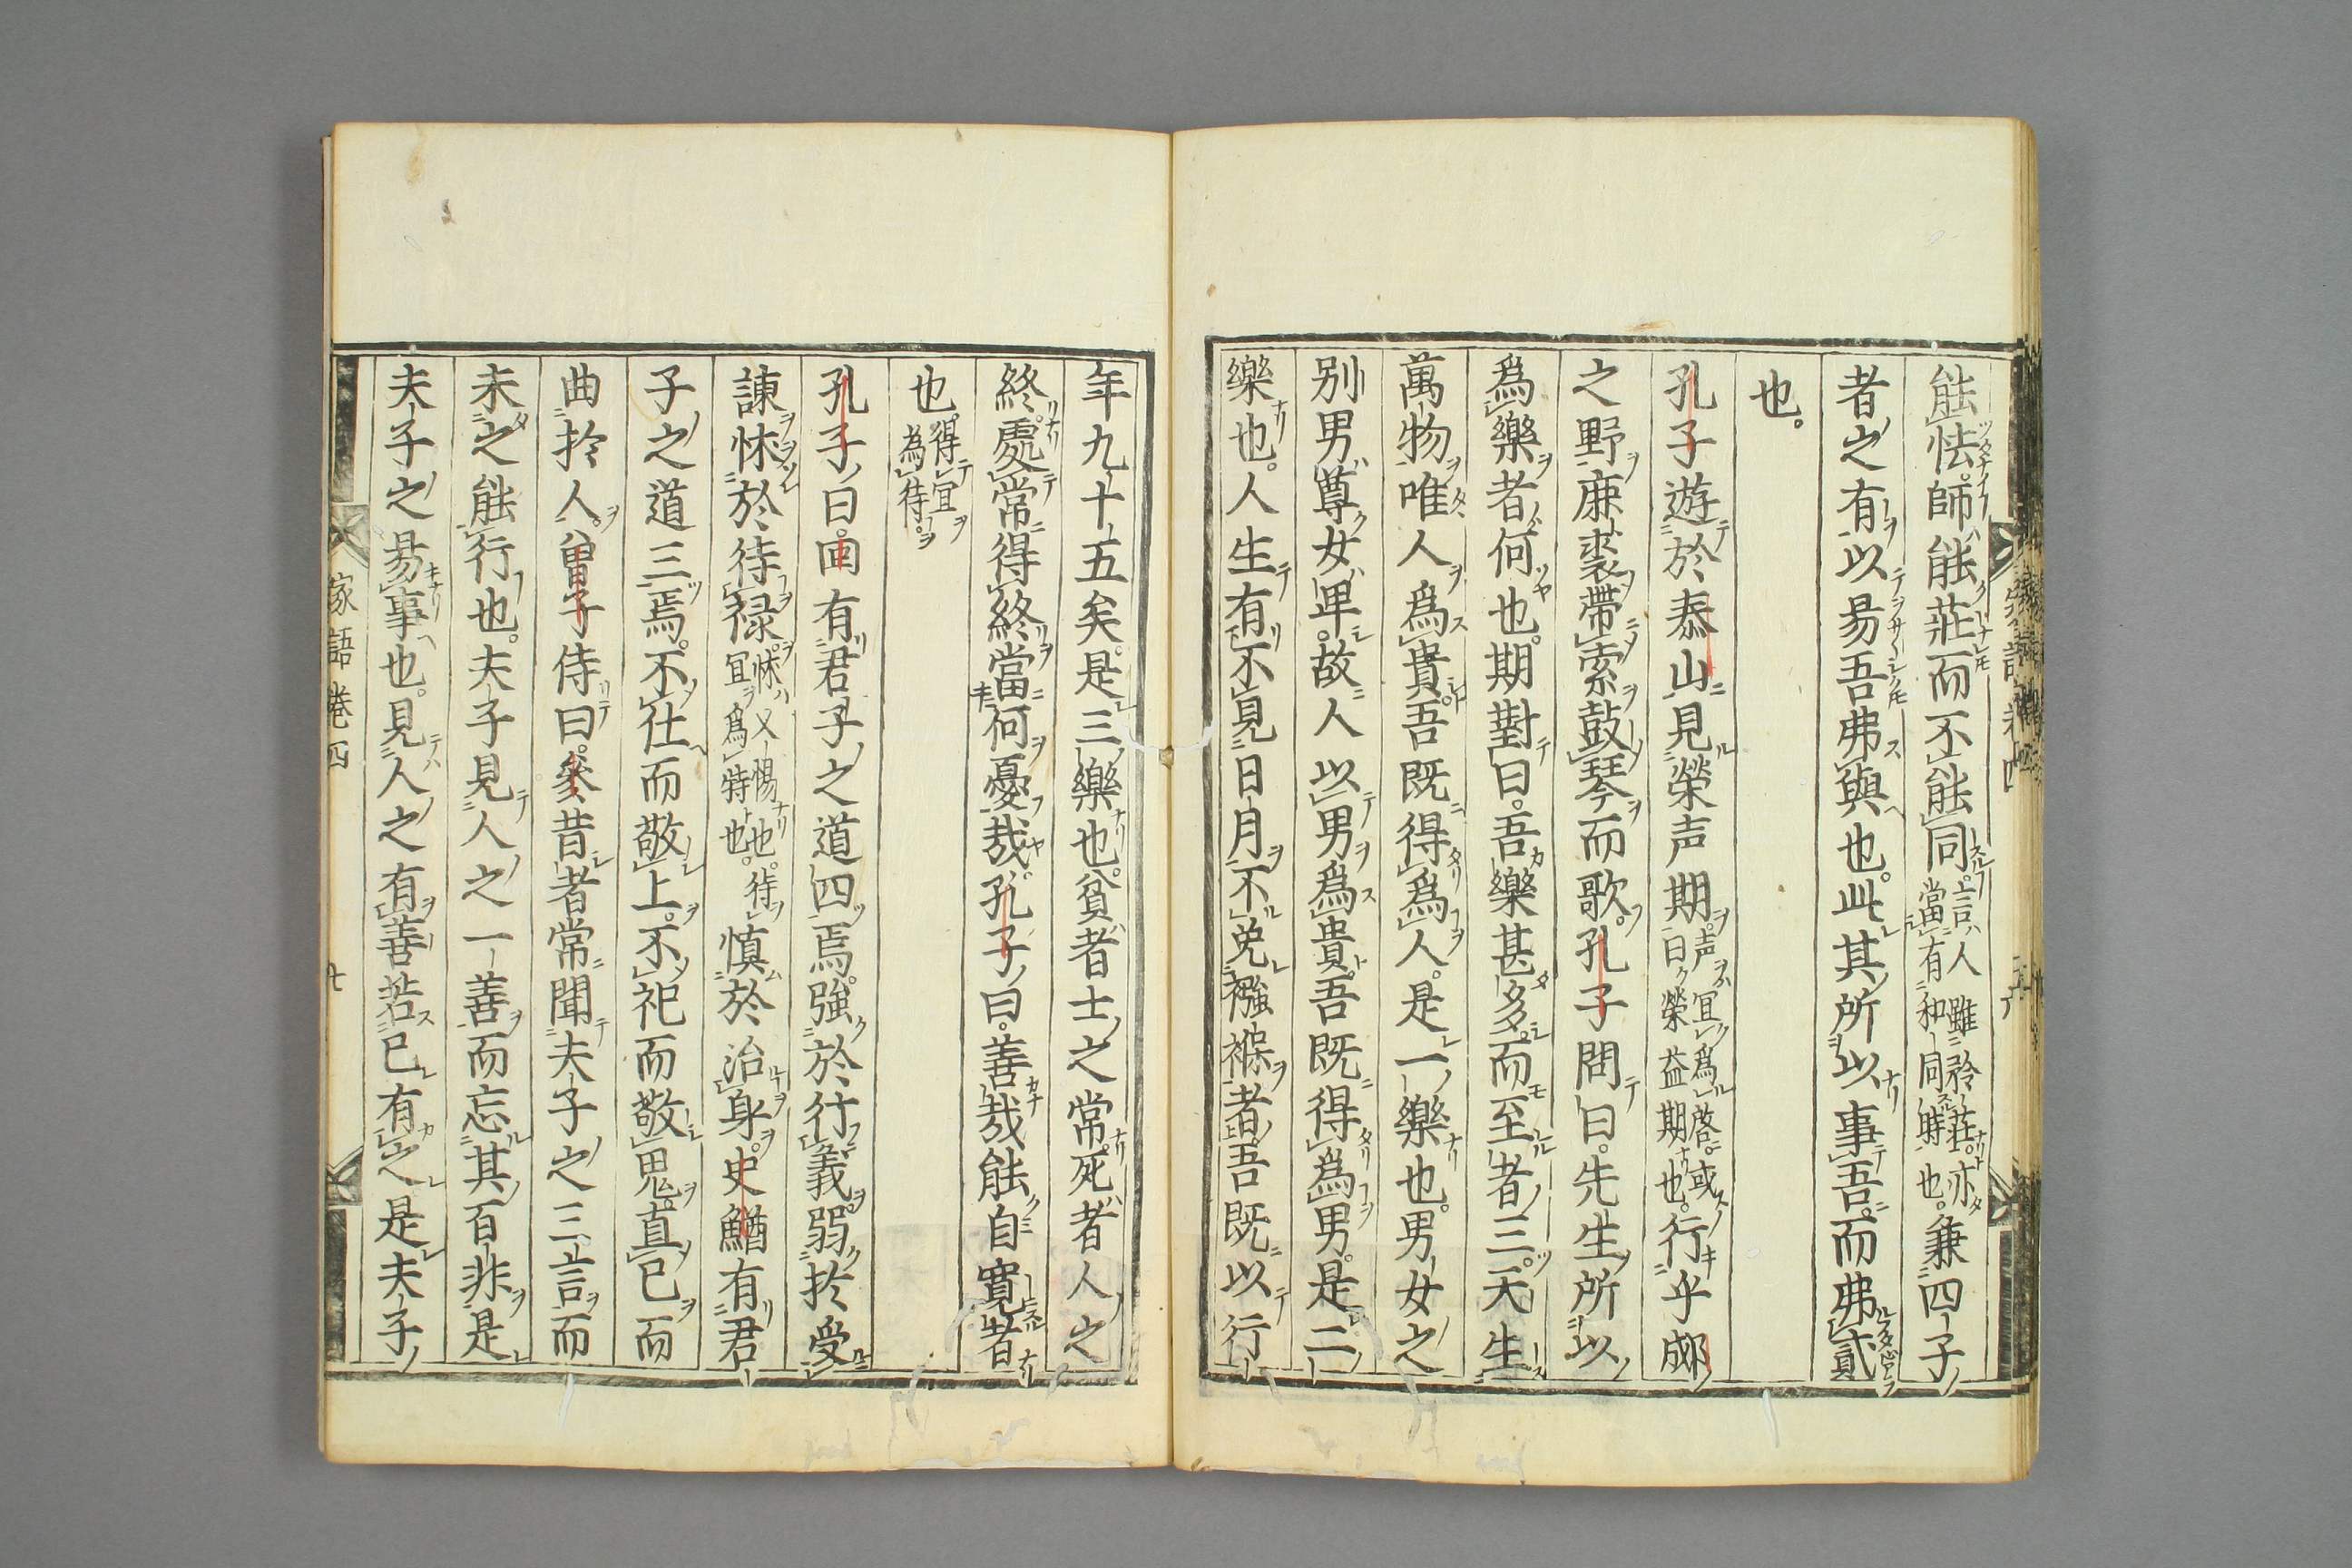 能怯師能莊而不能同言人雖矜莊亦當有和同時也兼四子
者之有以易吾弗與也此其所以事吾而弗貳
也
孔子遊於泰山見榮声期声宜爲啓或曰榮益期也行乎郕
之野鹿裘帶索鼓琴而歌孔子問曰先生所以
爲樂者何也期對曰吾樂甚多而至者三天生
萬物唯人爲貴吾既得爲人是一樂也男女之
別男尊女卑故人以男爲貴吾既得爲男是二
樂也人生有不見日月不免襁褓者吾既以行
年九十五矣是三樂也貧者士之常死者人之
終處常得終當何憂哉孔子曰善哉能自寬者
也得宜為待
孔子曰回有君子之道四焉強於行義弱於受
諫怵於待禄怵又惕也待宜爲特也慎於治身史鰌有君
子之道三焉不仕而敬上不祀而敬鬼直已而
曲於人曽子侍曰參昔者常聞夫子之三言而
未之能行也夫子見人之一善而忘其百非是
夫子之易事也見人之有善若已有之是夫子
家語卷四 七